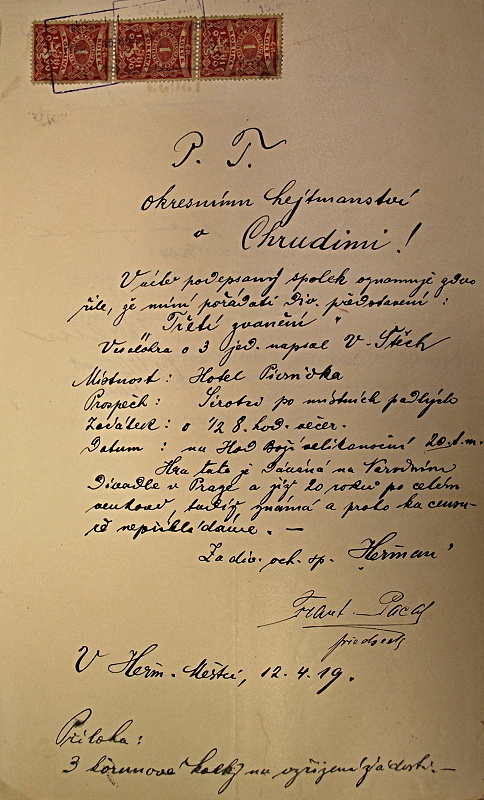 P. T.
okresnímu hejtmanství
v Chrudimi!
V úctě podepsaný spolek oznamuje zdvo
řile, že míní pořádati div. představení:
"Třetí zvonění"
Veselohra o 3 jed. napsal V. Štěch
Místnost: Hotel Pivrnička
Prospěch: Sirotci po místních padlých
Začátek: o 1/2 8. hod. večer.
Datum: na Hod Boží velikonoční 20. t. m.
Hra tato je dávána na Národním
Divadle v Praze a již 20 roků po celém
venkově, tudíž známá a proto ku censu-
ře nepřikládáme. —
Za div. och. sp. "Heřman"
Frant. Pacal
předseda
V Heřm. Městci, 12. 4. 19.
Příloha:
3 korunové kolky na vyřízení žádosti. —